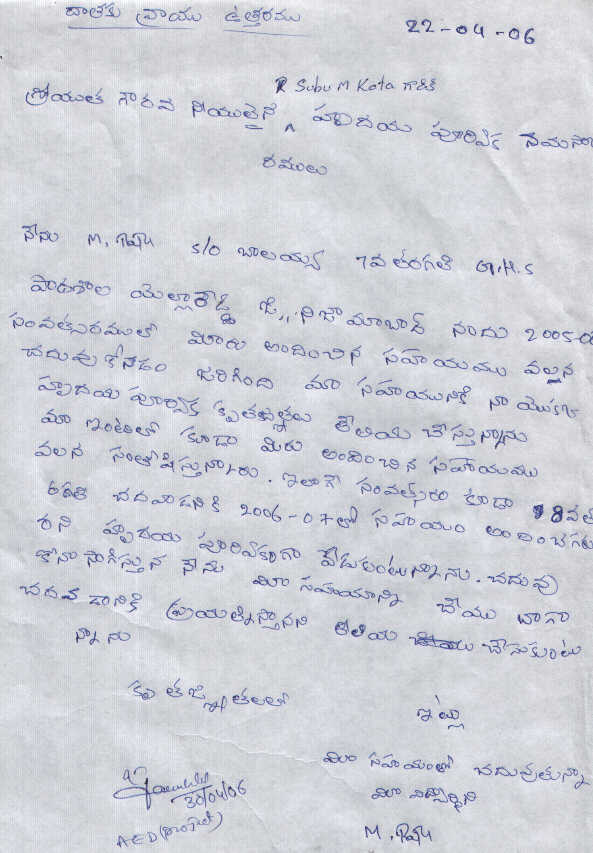 దాతకు వ్రాయు ఉత్తరము
22-04-06
R Subu M Kota గారికి
శ్రీయుత గౌరవ నీయులైన ^ హృదయ పూర్వక నమస్కా
రములు
నేను M. రాజు S/o బాలయ్య 7వ తరగతి G.H.S
పాఠశాల యెల్లారెడ్డి జి,, నిజామాబాద్ నందు 2005-06
సంవత్సరములో మీరు అందించిన సహాయము వల్లన
చదువుకోవడం జరిగింది మీ సహాయునికి నా యొక్క
హృదయ పూర్వక కృతజ్ఞతలు తెలియ చేస్తున్నాను
మా ఇంటిలో కూడా మీరు అందించిన సహాయము
వలన సంతోషిస్తున్నారు. ఇలాగే సంవత్సరం కూడా 8వ త
రగతి చదవడానికి 2006-07లో సహాయం అందించగల
రని హృదయ పూర్వకంగా వేడుకుంటున్నాను. చదువు
కొనసాగిస్తున్న నేను మీ సహాయాన్ని బాగా
చదవడానికి ప్రయత్నిస్తానని తెలియ చేసుకుంటు
న్నాను
కృతజ్ఞతలతో
ఇట్లు
మీ సహాయంతో చదువుతున్నా
మీ విద్యార్థిని
30/04/06
AED (project)
M. రాజు